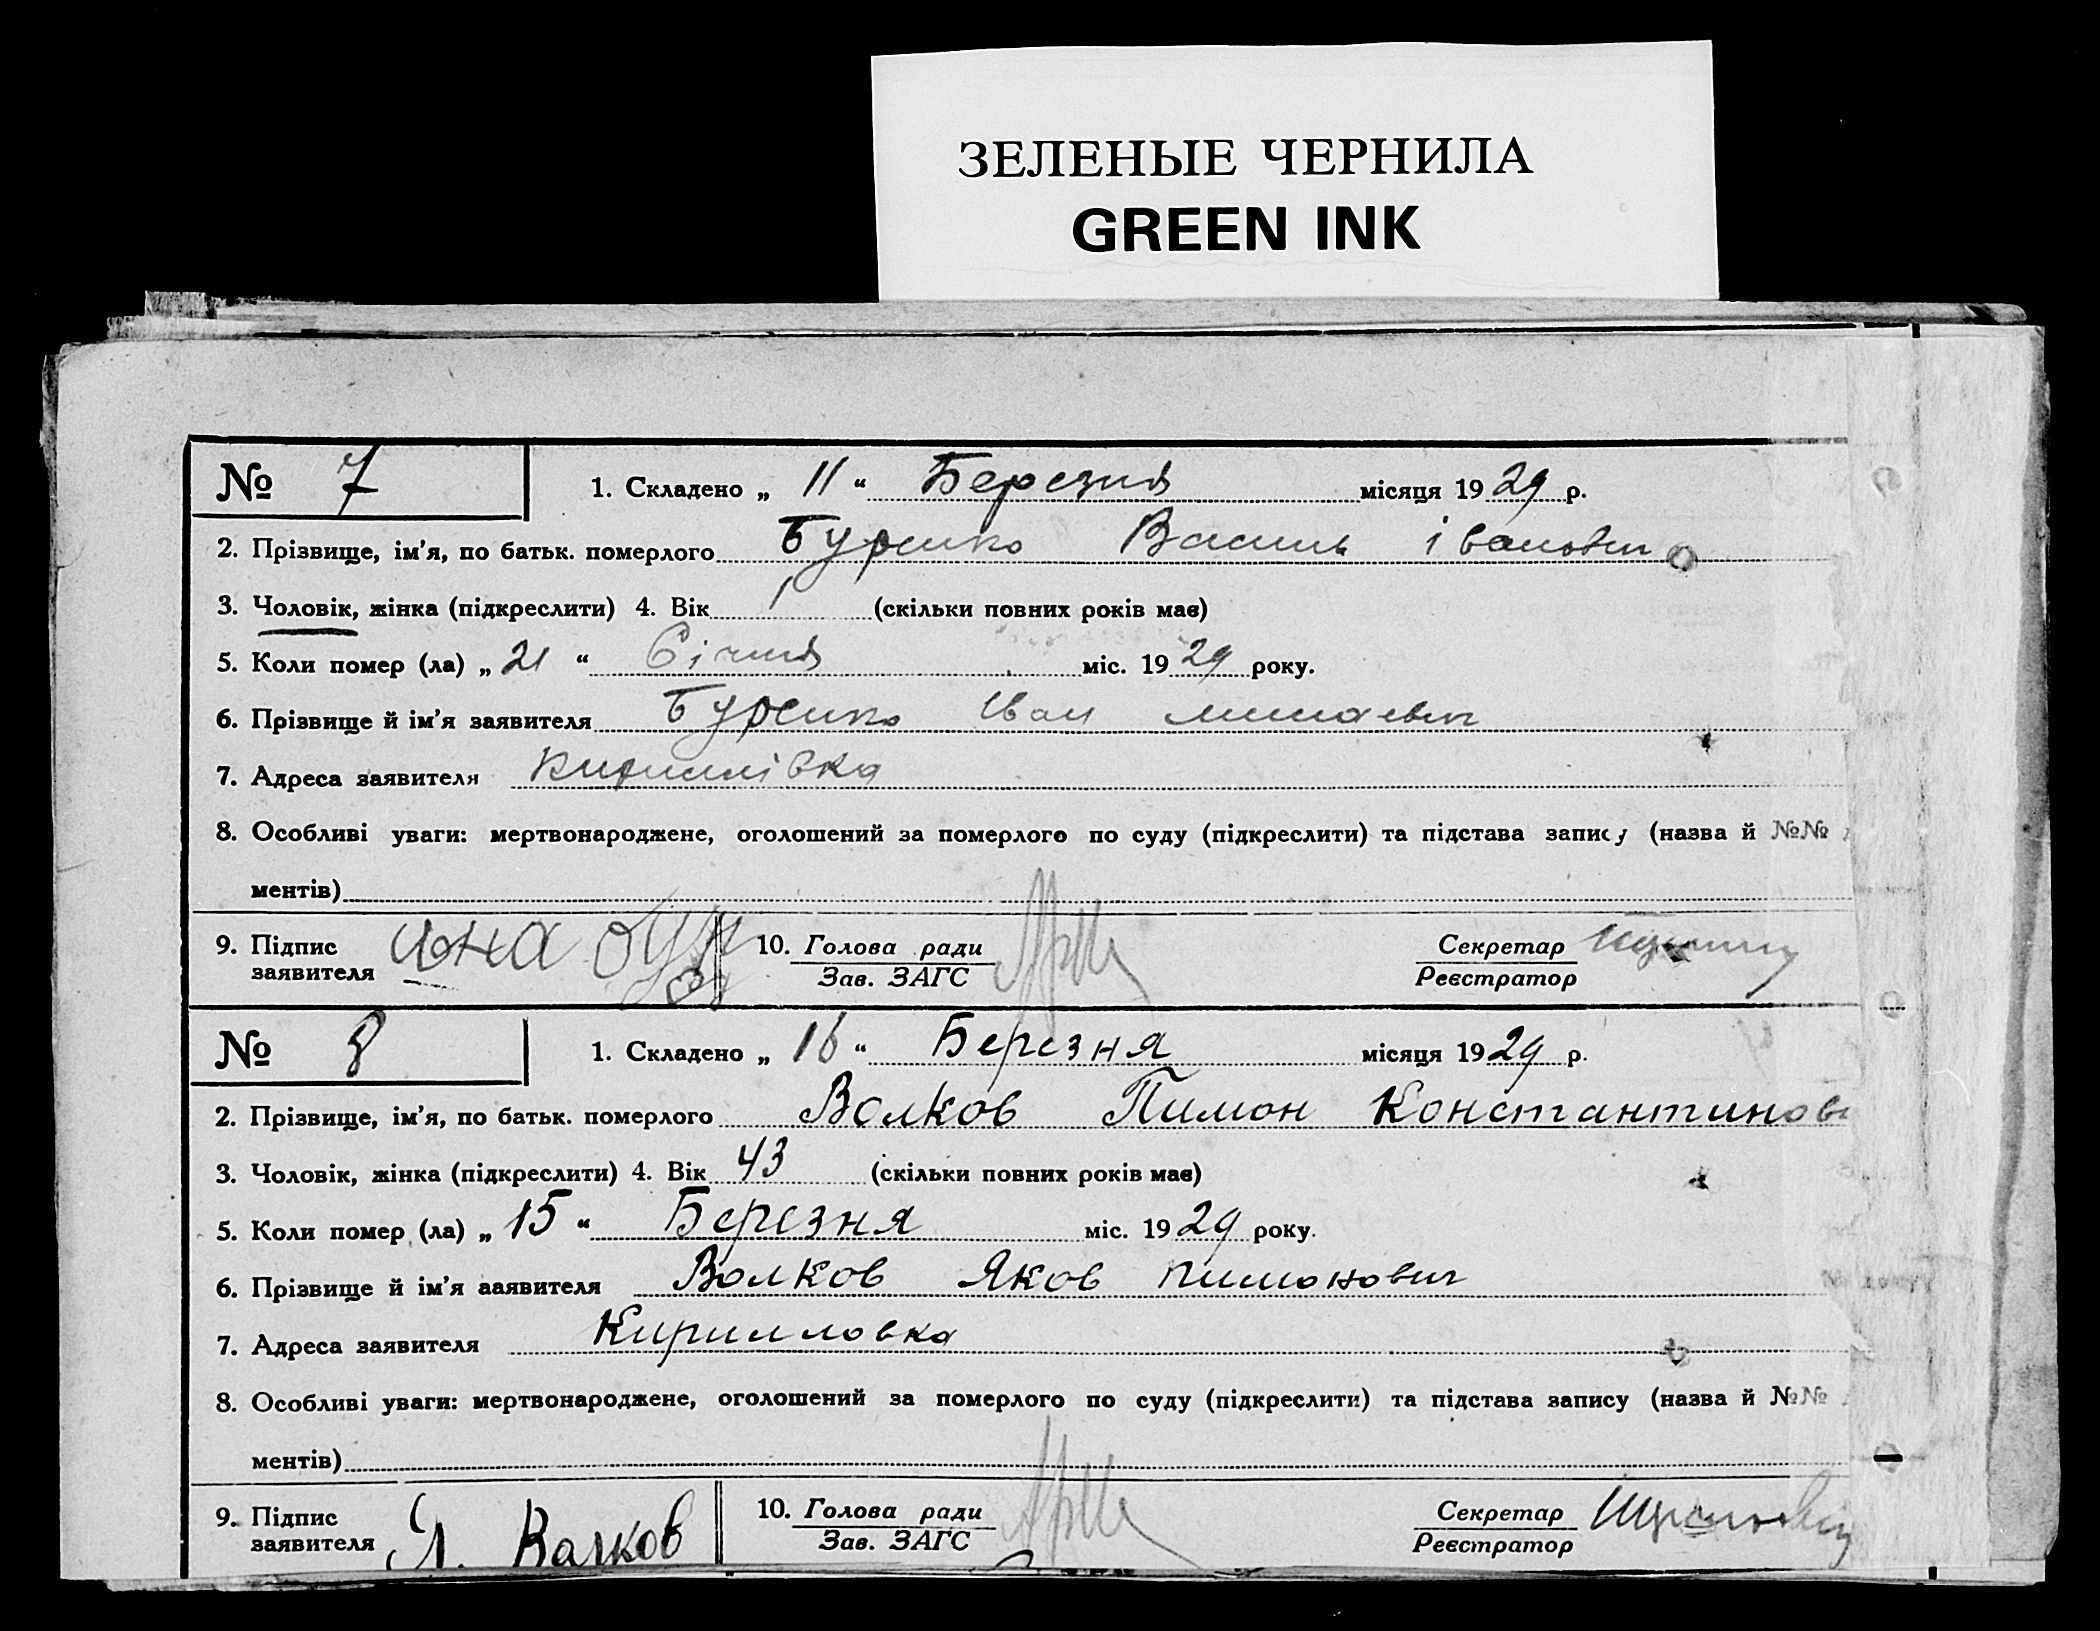 ЗЕЛЕНЫЕ ЧЕРНИЛА
GREEN INK
№ 7 1. Складено „ 11 “ Березня місяця 19 29 р.
2. Прізвище, ім'я, по батьк. померлого Буренко Василь Іванович
3. Чоловік, жінка (підкреслити) 4. Вік 1 (скільки повних років має)
5. Коли помер (ла) „ 21 “ Січня міс. 19 29 року.
6. Прізвище й ім'я заявителя Буренко Иван
7. Адреса заявителя Кирилівка
8. Особливі уваги: мертвонароджене, оголошений за померлого по суду (підкреслити) та підстава запису (назва й №№
ментів)
9. Підпис
заявителя
10. Голова ради
Зав. ЗАГС
Секретар
Реєстратор
№ 8 1. Складено „ 16 “ Березня місяця 19 29 р.
2. Прізвище, ім'я, по батьк. померлого Волков Пимон Константинов
3. Чоловік, жінка (підкреслити) 4. Вік 43 (скільки повних років має)
5. Коли помер (ла) „ 15 “ Березня міс. 19 29 року.
6. Прізвище й ім'я заявителя Волков Яков Пимонович
7. Адреса заявителя Кирилловка
8. Особливі уваги: мертвонароджене, оголошений за померлого по суду (підкреслити) та підстава запису (назва й №№
ментів)
9. Підпис
заявителя Я. Валков
10. Голова ради
Зав. ЗАГС
Секретар
Реєстратор